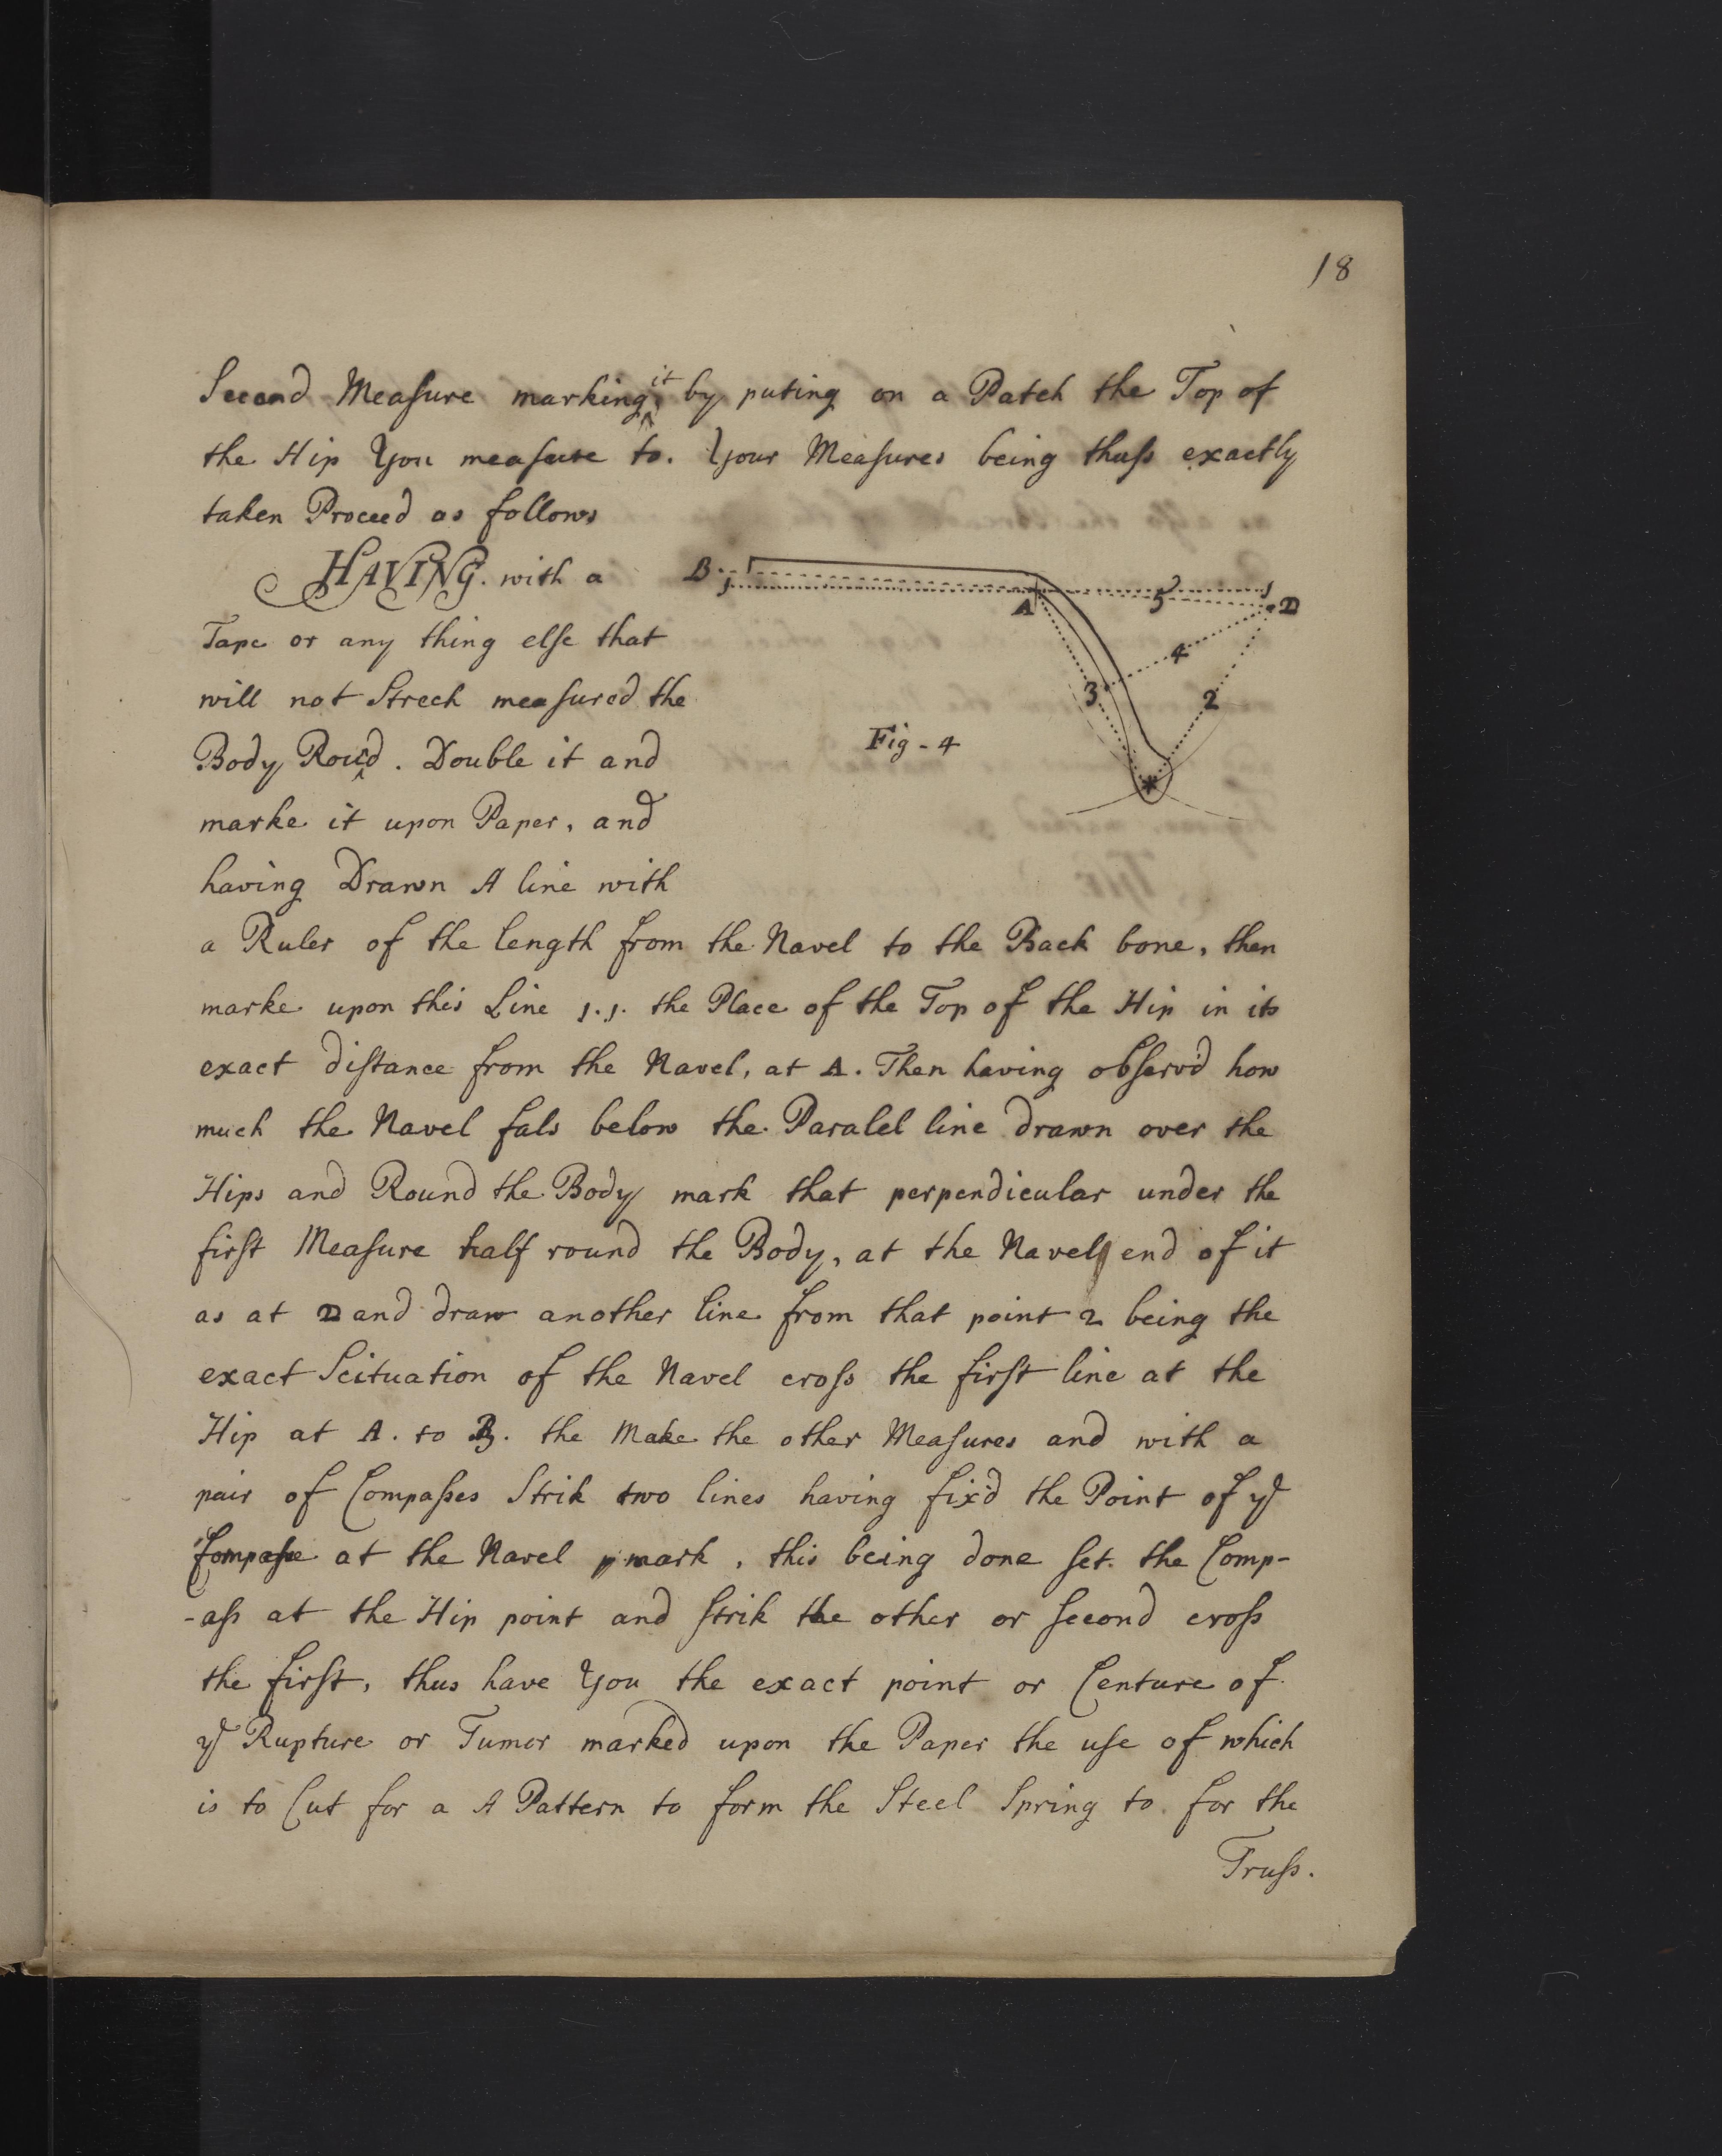 18
Second Measure marking it by puting on a Patch the Top of
the Hip You measure to. Your Measures being thuss exactly
taken Proceed as follows
HAVING. with a
Tape or any thing else that
will not Strech measured the
Body Round. Double it and
marke it upon Paper, and
having Drawn A line with
B
1
A
5
1
D
4
3
2
Fig - 4
a Ruler of the length from the Navel to the Back bone, then
marke upon this Line 1.1. the Place of the Top of the Hip in its
exact distance from the Navel, at A. Then having observ'd how
much the Navel fals below the Paralel line drawn over the
Hips and Round the Body mark that perpendicular under the
first Measure half round the Body, at the Navel end of it
as at D and draw another line from that point 2 being the
exact Scituation of the Navel cross the first line at the
Hip at A. to B. the Make the other Measures and with a
pair of Compasses Strik two lines having fix'd the Point of ye
Compasse at the Navel mark, this being done set the Comp-
-ass at the Hip point and strik the other or second cross
the first, thus have You the exact point or Centure of
ye Rupture or Tumor marked upon the Paper the use of which
is to Cut for a A Pattern to form the Steel Spring to for the
Truss.